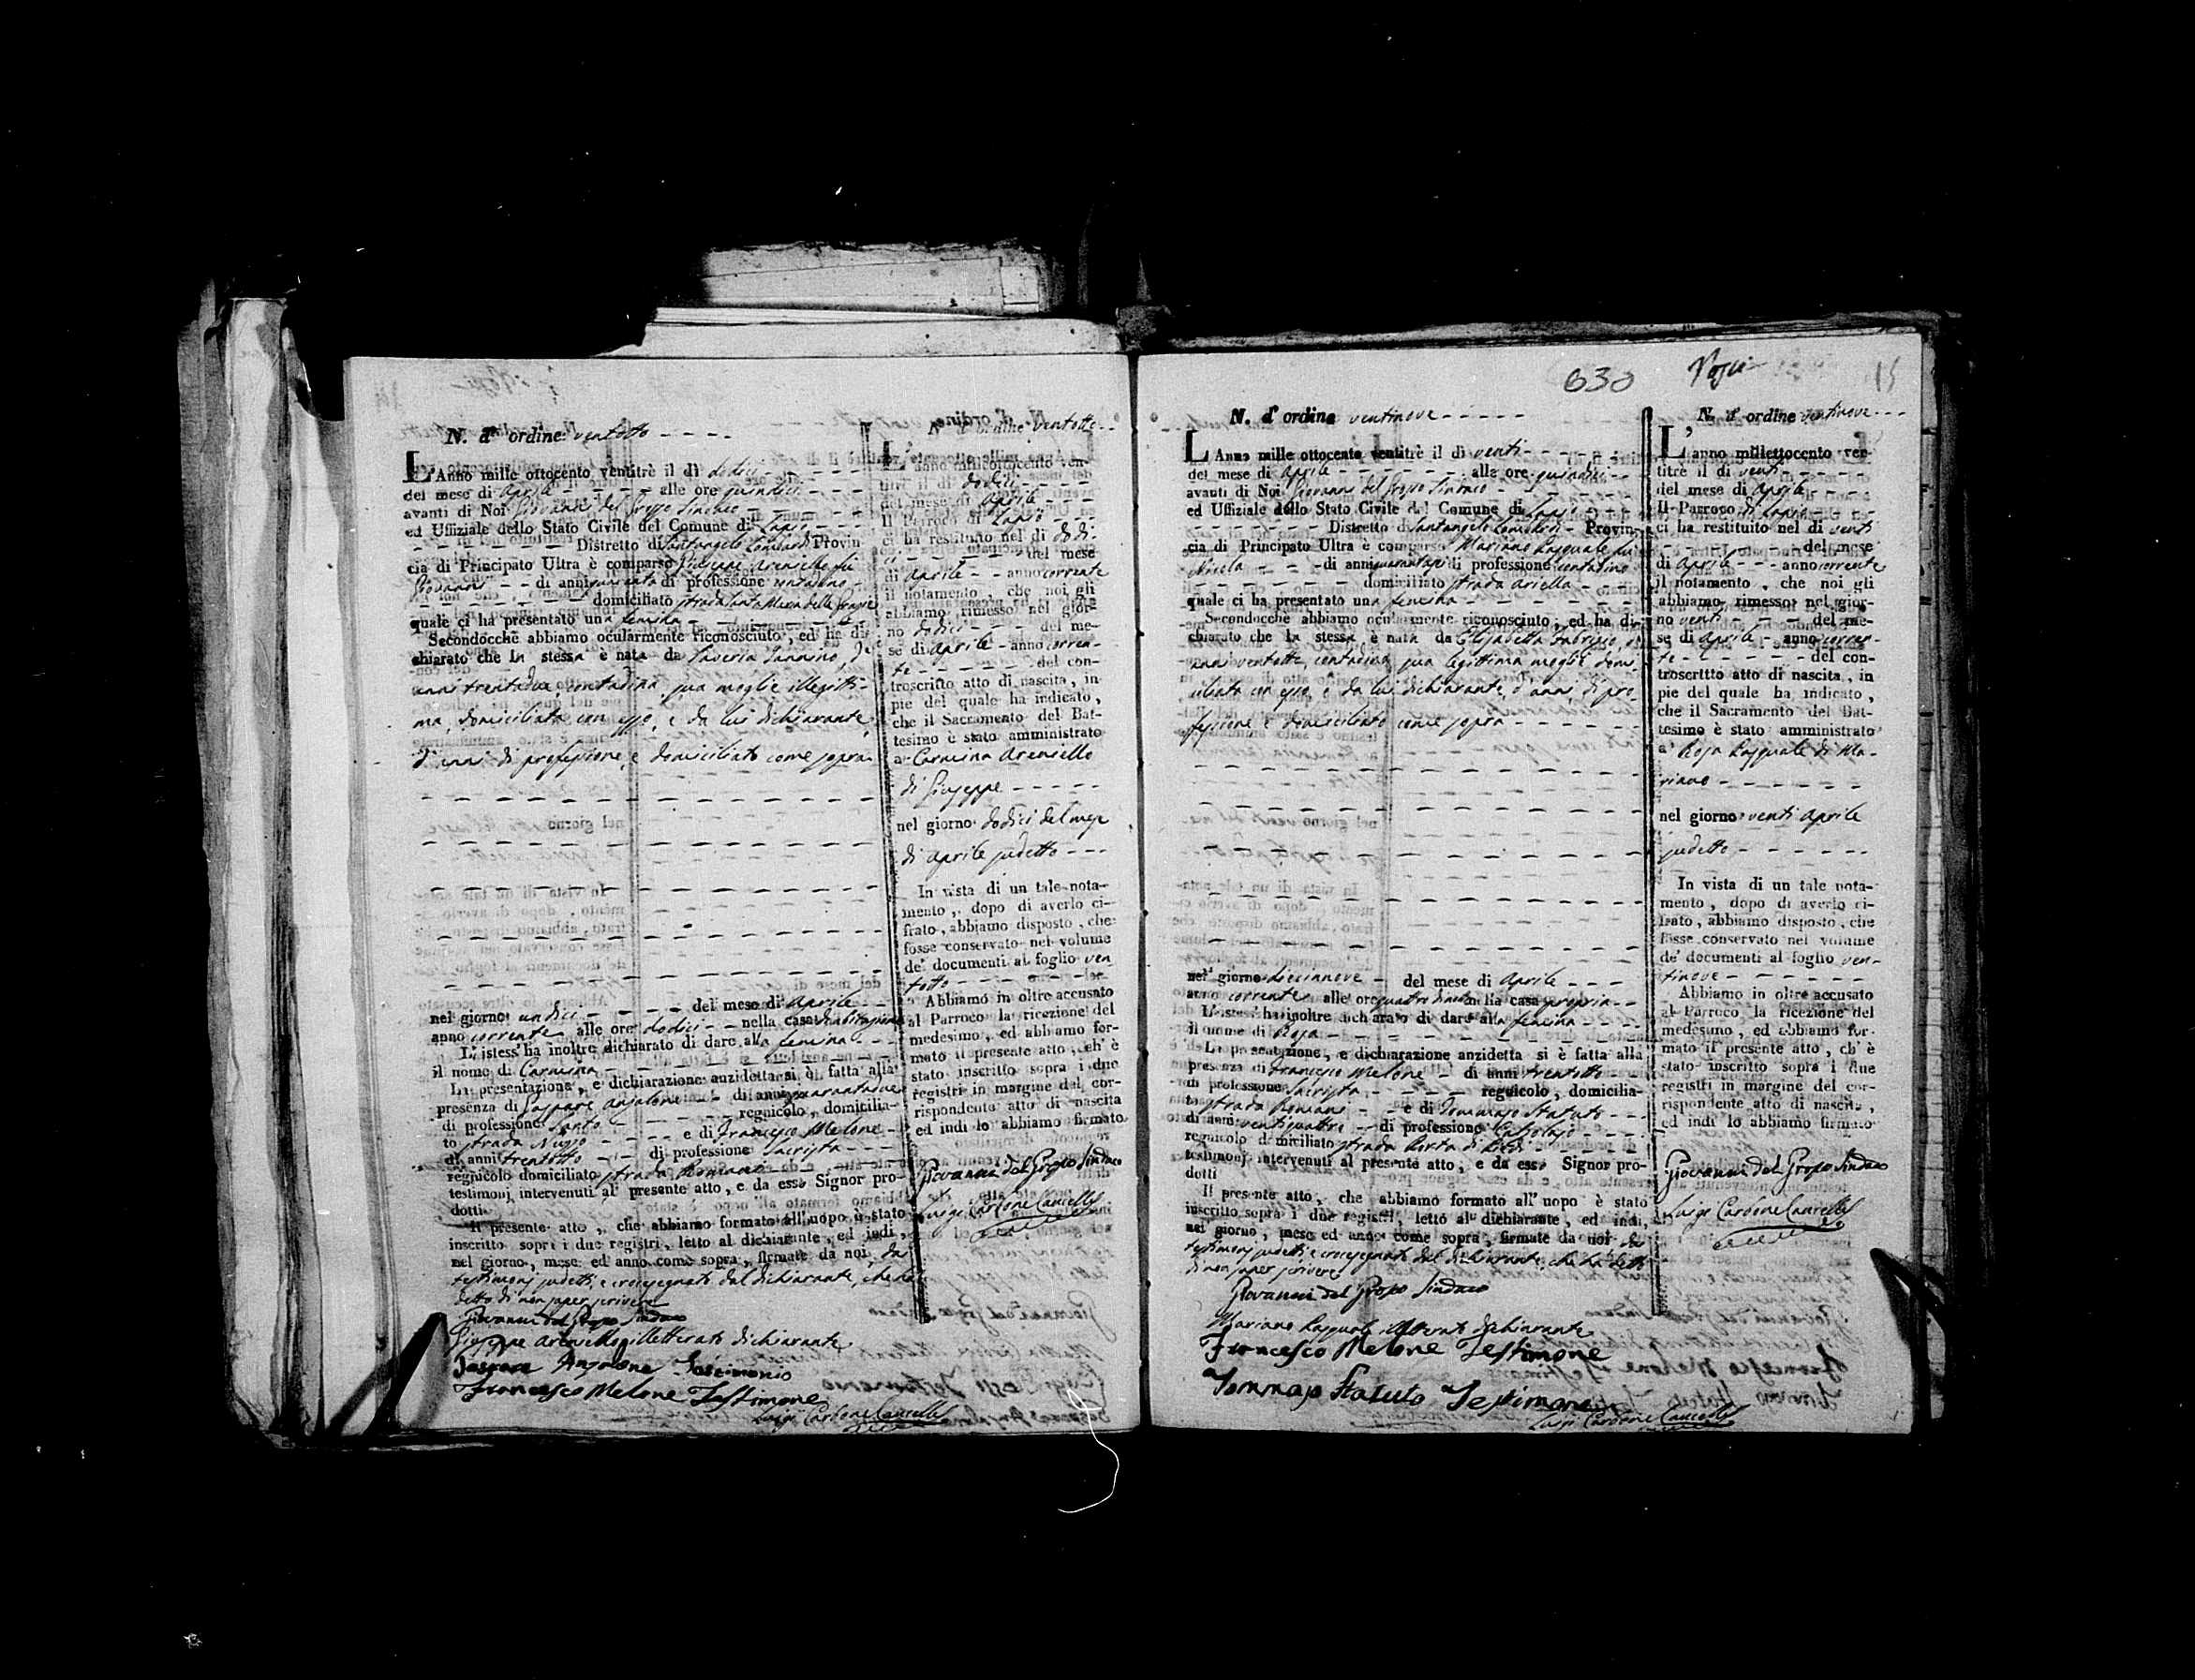 N. d' ordine ventotto
L'Anno mille ottocento ventitrè il dì dodici
del mese di Aprile alle ore quindici
avanti di Noi Giovanni del Grosso Sindaco
ed Uffiziale dello Stato Civile del Comune di Lapio
Distretto di Santangelo Lombardi Provin
cia di Principato Ultra è comparso Giuseppe Arenello fu
Giovanni di anni quaranta di professione contadino
domiciliato strada Santa Maria delle Grazie
quale ci ha presentato una femina
Secondocchè abbiamo ocularmente riconosciuto, ed ha di
chiarato che la stessa è nata da Saveria Iannino, di
anni trentadue contadina sua moglie illegitti-
ma, domiciliata con esso, e da lui dichiarante,
d'anni di professione, e domiciliato come sopra
nel giorno undici del mese di Aprile
anno corrente alle ore dodici nella casa d'abitazione
L'istess'ha inoltre dichiarato di dare alla femina
il nome di Carmina
La presentazione, e dichiarazione anzidetta si è fatta alla
presenza di Gaspare Anzalone di anni quarantadue
di professione Sarto regnicolo, domicilia-
to strada Nuzzo e di Francesco Melone
di anni trentotto di professione Sacrista
regnicolo domiciliato strada Romano
testimonj intervenuti al presente atto, e da esso Signor pro-
dotti
Il presente atto, che abbiamo formato all'uopo è stato
inscritto sopra i due registri, letto al dichiarante, ed indi,
nel giorno, mese ed anno come sopra, firmate da noi, da
testimonj sudetti, e crocesegnato dal dichiarante, che ha
detto di non saper scrivere
Giovanni del Grosso Sindaco
Giuseppe Arenello illetterato dichiarante
Gaspare Anzalone Testimonio
Francesco Melone Testimone
Luigi Carbone Cancelle
N. d' ordine Ventotto
L'anno millettocento ven-
titrè il dì dodici
del mese di Aprile
Il Parroco di Lapio
ci ha restituito nel dì dodi-
ci del mese
di Aprile anno corrente
il notamento, che noi gli
abbiamo rimesso nel gior-
no dodici del me-
se di Aprile anno corren-
te del con-
troscritto atto di nascita, in
pie del quale ha indicato,
che il Sacramento del Bat-
tesimo è stato amministrato
a Carmina Arenello
di Giuseppe
nel giorno dodici del mese
di Aprile sudetto
In vista di un tale nota-
mento, dopo di averlo ci-
frato, abbiamo disposto, che
fosse conservato nel volume
de' documenti al foglio ven
totto
Abbiamo in oltre accusato
al Parroco la ricezione del
medesimo, ed abbiamo for-
mato il presente atto, ch'è
stato inscritto sopra i due
registri in margine del cor-
rispondente atto di nascita
ed indi lo abbiamo firmato
Giovanni del Grosso Sindaco
Luigi Carbone Cancelle
630
15
N. d' ordine ventinove
L'Anno mille ottocento ventitrè il dì venti
del mese di Aprile alle ore quindici
avanti di Noi Giovanni del Grosso Sindaco
ed Uffiziale dello Stato Civile del Comune di Lapio
Distretto di Santangelo Lombardi Provin-
cia di Principato Ultra è comparso Mariano Pasquale fu
Nicola di anni quarantasei di professione contadino
domiciliato strada Ariella
quale ci ha presentato una femina
Secondocchè abbiamo ocularmente riconosciuto, ed ha di-
chiarato che la stessa è nata da Elisabetta Fabrizio, d'
anni ventotto, contadina sua legittima moglie domi
ciliata con esso, e da lui dichiarante, d'anni di pro
fessione e domiciliato come sopra
nel giorno diecinnove del mese di Aprile
anno corrente alle ore quattro nella casa propria
L'istess'ha inoltre dichiarato di dare alla femina
il nome di Rosa
La presentazione, e dichiarazione anzidetta si è fatta alla
presenza di Francesco Melone di anni trentotto
di professione Sacrista regnicolo, domicilia-
to strada Romano e di Tommaso Statuto
di anni ventiquattro di professione Calzolajo
regnicolo domiciliato strada Porta di Piedi
testimonj intervenuti al presente atto, e da esso Signor pro-
dotti
Il presente atto, che abbiamo formato all'uopo è stato
inscritto sopra i due registri, letto al dichiarante, ed indi,
nel giorno, mese ed anno come sopra, firmate da noi da
testimonj sudetti, e crocesegnato dal dichiarante che ha detto
di non saper scrivere
Giovanni del Grosso Sindaco
Mariano Pasquale illetterato dichiarante
Francesco Melone Testimone
Tommaso Statuto Testimone
Luigi Carbone Cancelle
N. d' ordine ventinove
L'anno millettocento ven-
titrè il dì venti
del mese di Aprile
Il Parroco di Lapio
ci ha restituito nel dì venti
del mese
di Aprile anno corrente
il notamento, che noi gli
abbiamo rimesso nel gior-
no venti del me-
se di Aprile anno corren-
te del con-
troscritto atto di nascita, in
pie del quale ha indicato,
che il Sacramento del Bat-
tesimo è stato amministrato
a Rosa Pasquale di Ma-
riano
nel giorno venti Aprile
sudetto
In vista di un tale nota-
mento, dopo di averlo ci-
frato, abbiamo disposto, che
fosse conservato nel volume
de' documenti al foglio ven-
tinove
Abbiamo in oltre accusato
al Parroco la ricezione del
medesimo, ed abbiamo for-
mato il presente atto, ch'è
stato inscritto sopra i due
registri in margine del cor-
rispondente atto di nascita,
ed indi lo abbiamo firmato
Giovanni del Grosso Sindaco
Luigi Carbone Cancelle